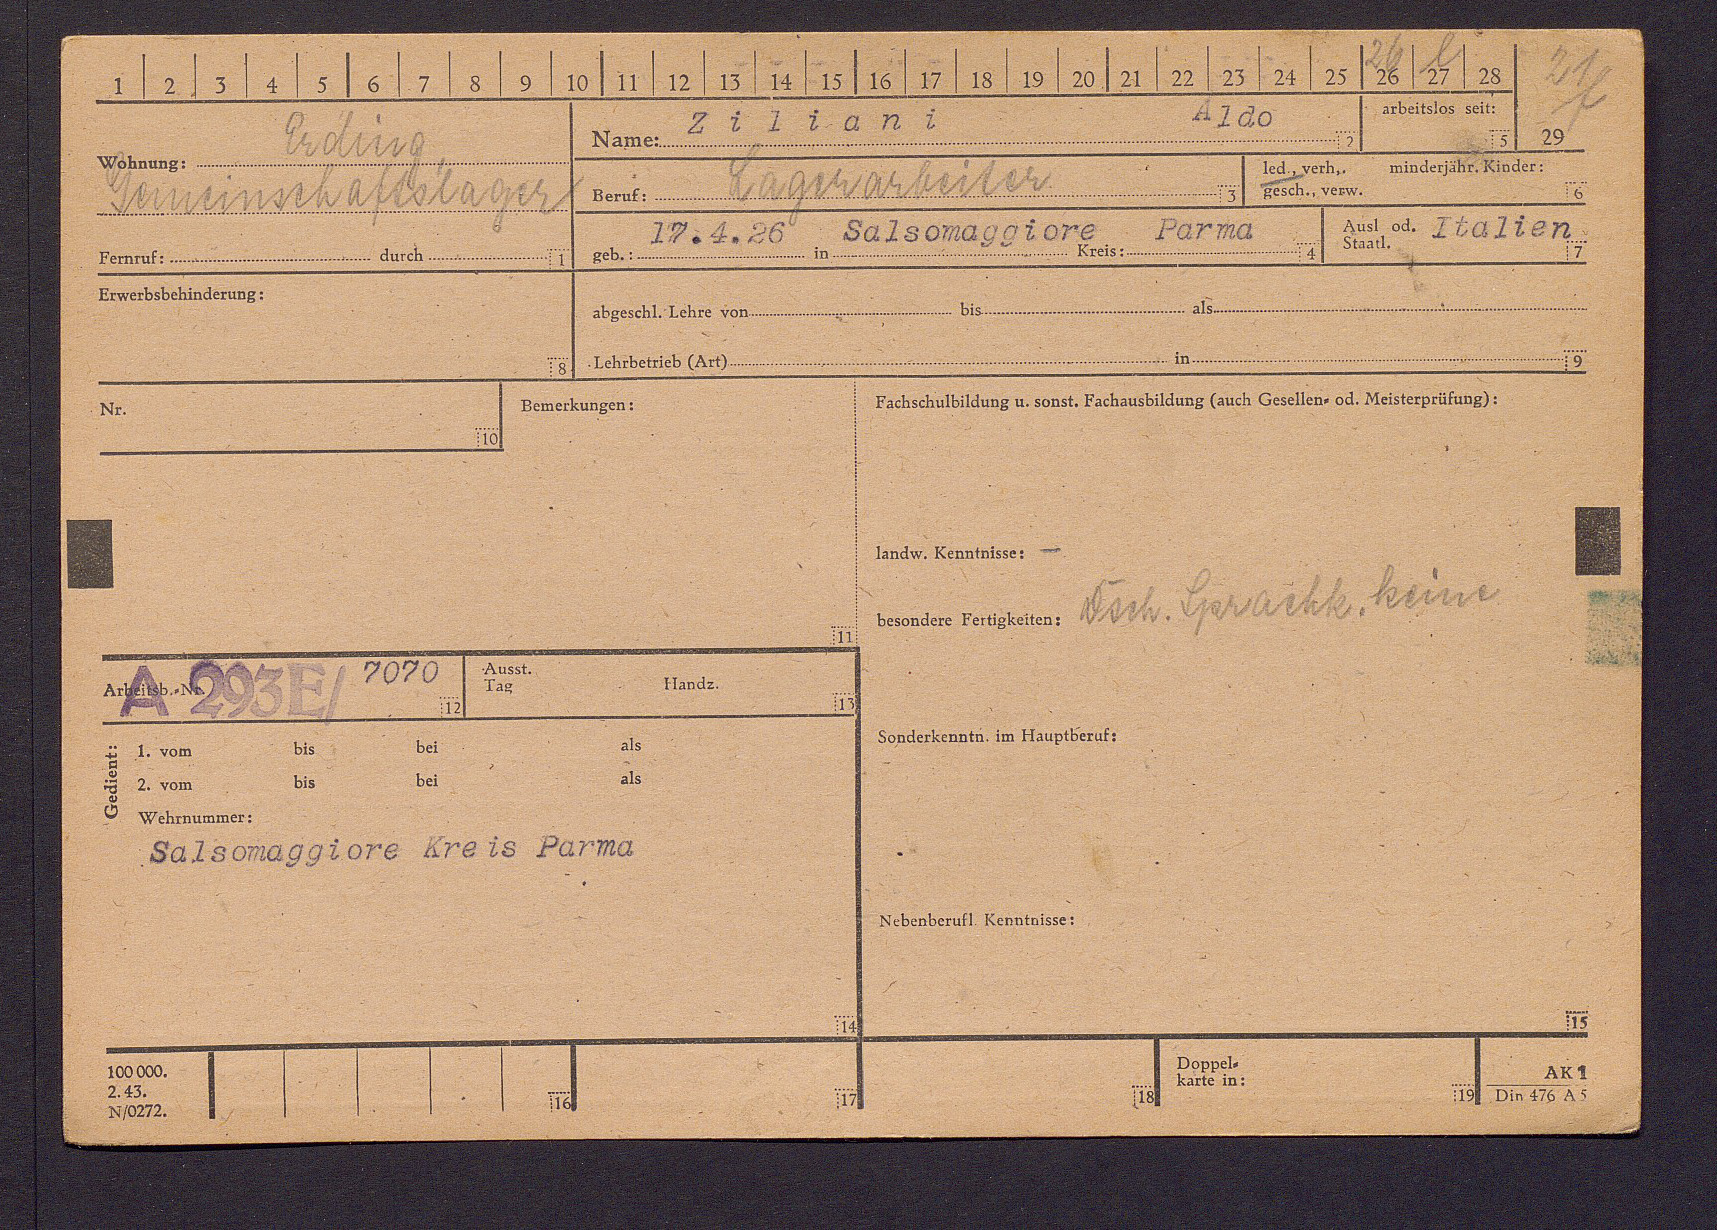 1 2 3 4 5 6 7 8 9 10 11 12 13 14 15 16 17 18 19 20 21 22 23 24 25 26 27 28
26
arbeitslos seit: 5
29
Wohnung: Erding,
Gemeinschaftslager
Fernruf: durch 1
Name: Ziliani Aldo 2
Beruf: Lagerarbeiter 3
led., verh., minderjähr. Kinder:
gesch., verw. 6
geb.: 17.4.26 in Salsomaggiore Kreis: Parma 4
Ausl od. Italien
Staatl. 7
Erwerbsbehinderung: 8
abgeschl. Lehre von bis als
Lehrbetrieb (Art) in 9
Nr. 10
Bemerkungen: 11
Fachschulbildung u. sonst. Fachausbildung (auch Gesellen- od. Meisterprüfung):
landw. Kenntnisse: —
besondere Fertigkeiten: Dtsch. Sprachk. keine
Sonderkenntn. im Hauptberuf:
Nebenberufl. Kenntnisse:
15
Arbeitsb.-Nr. A 293E/ 7070 12
Ausst.
Tag Handz. 13
Gedient:
1. vom bis bei als
2. vom bis bei als
Wehrnummer:
Salsomaggiore Kreis Parma
14
100 000.
2. 43.
N/0272.
16 17 18
Doppel-
karte in: 19
AK 1
Din 476 A 5